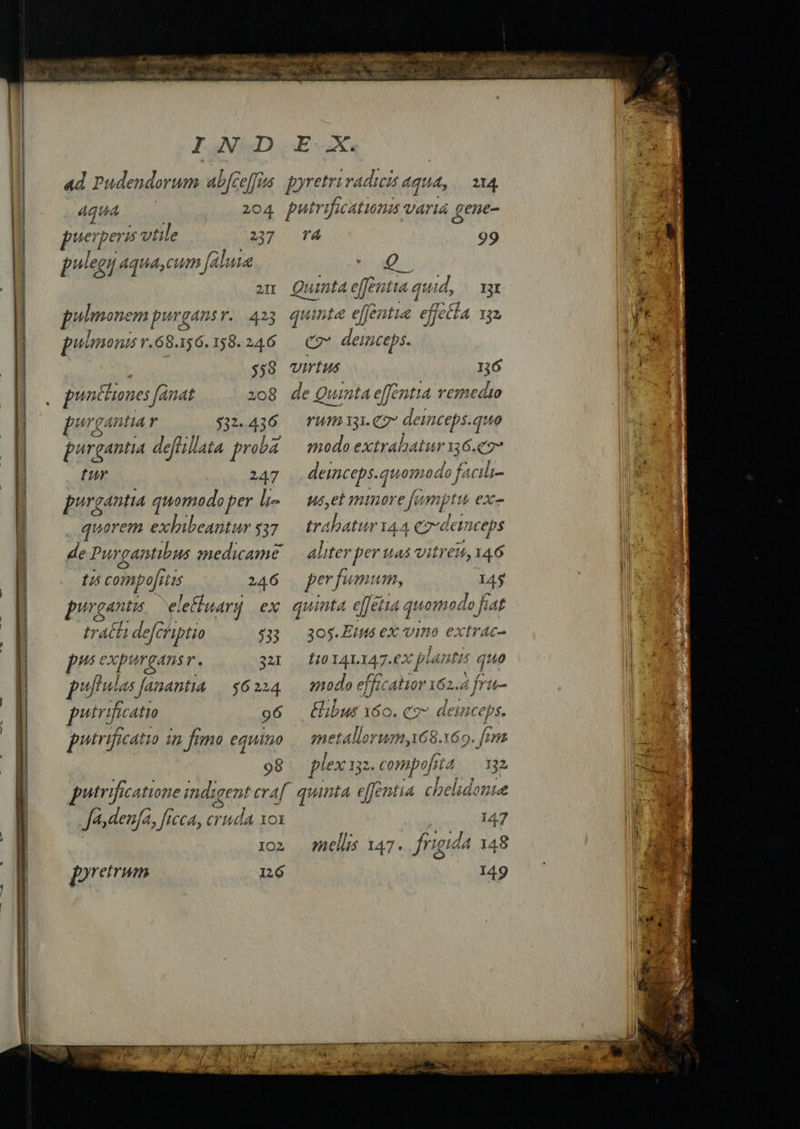 INDEX.
ad Pudendorum abſceſſus
aqua 204
puerperis vtile 237
pulegij aqua,cum ſaluia
211
pulmonem purgans r. 423
pulmonis r.68.156.158.246
558
punctiones ſanat 208
purgantia r 532.436
purgantia deſtillata probã
tur 247
purgantia quomodo per li-
quorem exhibeantur 537
de Purgantibus medicamẽ
tis compoſitis 246
purgantis electuarij ex
tracti deſcriptio 533
pus expurgans r. 321
puſtulas ſanantia 56 224
putrificatio 96
putrificatio in fimo equino
98
putrificatione indigent craſ
ſa,denſa, ſicca, cruda 101
102
pyretrum 126
pyretri radicis aqua, 214
putrificationis varia gene-
ra 99
Q
Quinta eſſentia quid, 131
quintæ eſſentiæ effecta 132
& deinceps.
virtus 136
de Quinta eſſentia remedio
rum 131.& deinceps.quo
modo extrahatur 136.&
deinceps.quomodo facili-
us,et minore ſumptu ex-
trahatur 144 & deinceps
aliter per uas vitreũ, 146
per fumum, 145
quinta eſſẽtia quomodo fiat
305.Eius ex vino extrac-
tio 141.147.ex plantis quo
modo efficatior 162.à fru-
ctibus 160. & deinceps.
metallorum,168.169. ſim
plex 132. compoſita 132
quinta eſſentia chelidoniæ
147
mellis 147. frigida 148
149